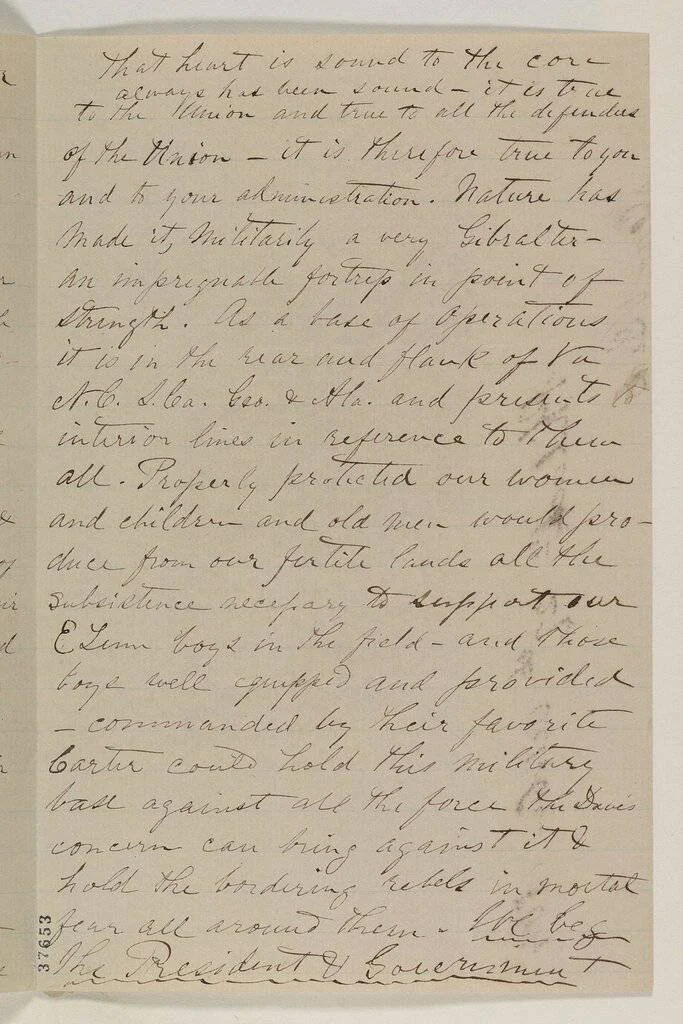 that heart is sound to the core
always has been sound - it is true
to the Union and true to all the defenders
of the Union - it is therefore true to you
and to your administration. Nature has
made it, militarily a very Gibralter -
an impregnable fortress in point of
strength. As a base of operations
it is in the rear and flank of Va
N.C. S.Ca. Geo. & Ala. and presents
interior lines in reference to them
all. Properly protected our women
and children and old men would pro-
duce from our fertile lands all the
subsistence necessary to support our
E Tenn boys in the field - and those
boys well equipped and provided
- commanded by their favorite
Carter could hold this military
base against all the force the Davis
concern can bring against it &
hold the bordering rebels in mortal
fear all around them. We beg
The President & Government
37653